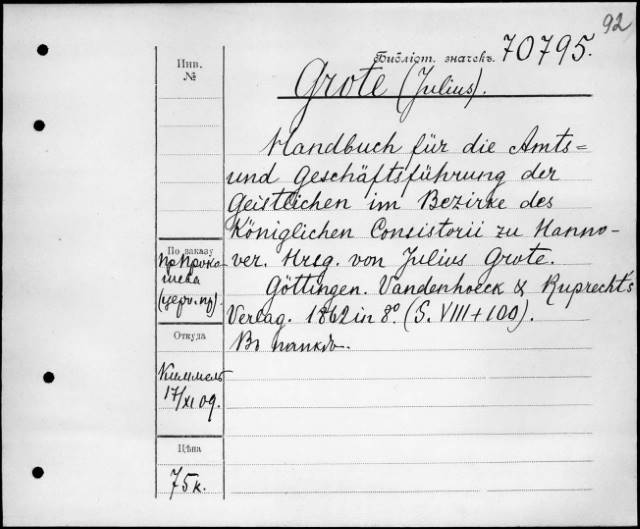 92
Инв.
№
Библіот. значекъ. 70795.
Grote (Julius).
Handbuch für die Amts=
und Geschäftsführung der
Geistlichen im Bezirke des
Königlichen Consistorii zu Hanno-
ver. Hrsg. von Julius Grote.
Göttingen. Vandenhoeck & Ruprecht's
Verlag. 1862 in 8º. (S. VIII + 100).
Въ папкѣ.
По заказу
пр. Прока
шева
(церк. пр).
Откуда
Киммель
17/XI 09.
Цѣна
75 к.